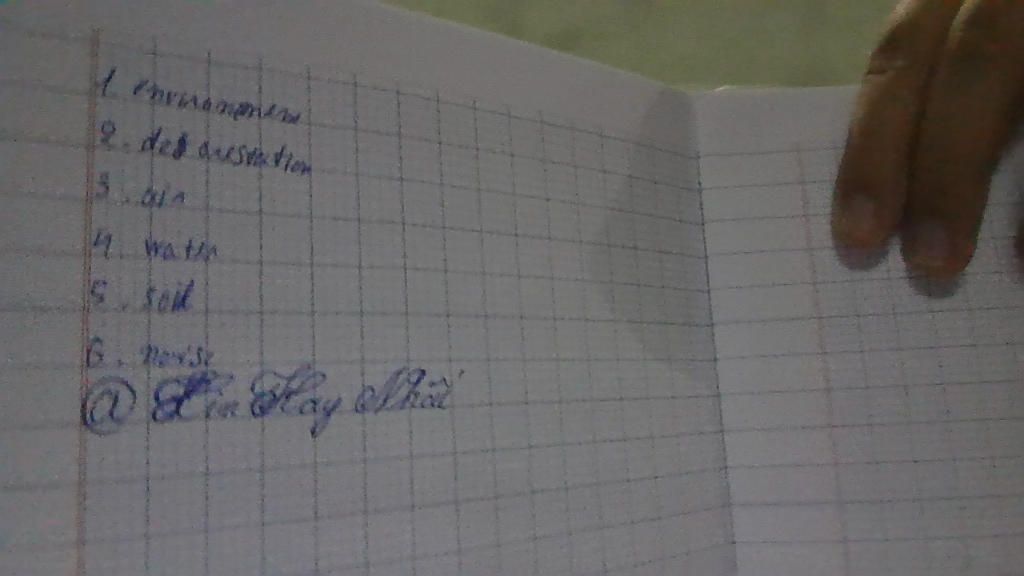 1. environment
2. deforestation
3. air
4. water
5. soil
6. noise
@ Tin Hay Nhất